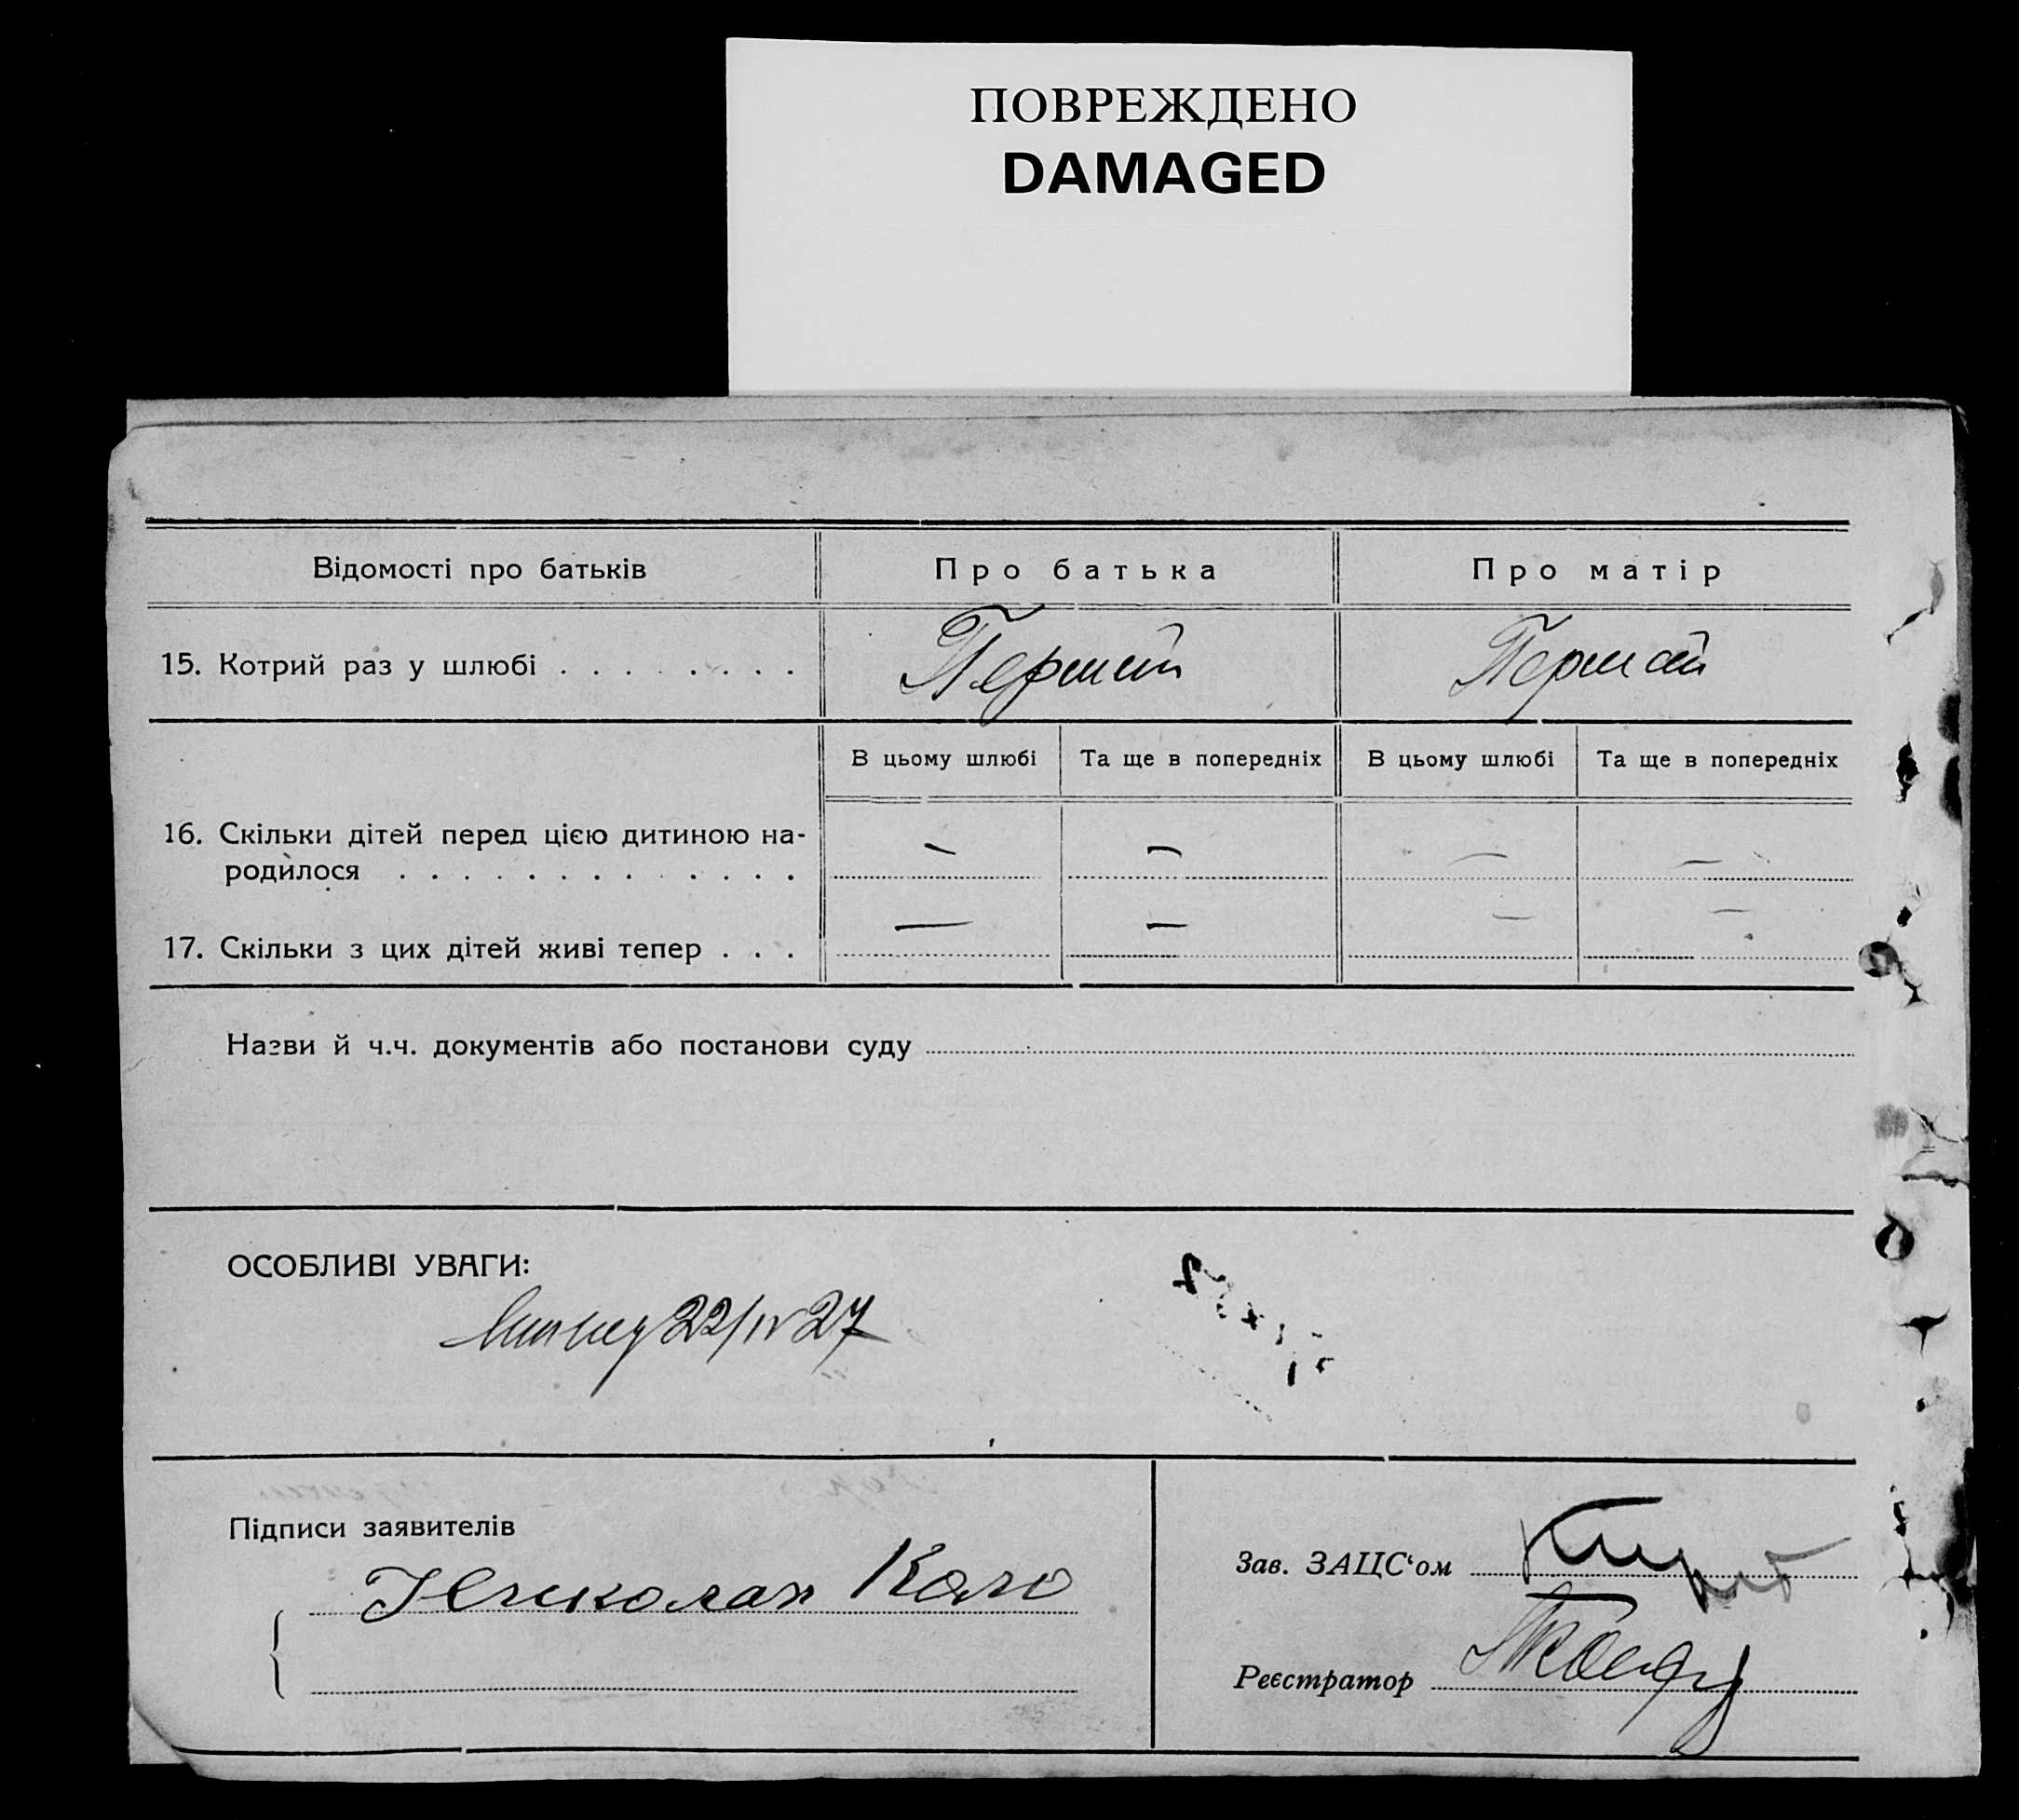 ПОВРЕЖДЕНО
DAMAGED
Відомості про батьків
Про батька
Про матір
15. Котрий раз у шлюбі
Перший
Перший
В цьому шлюбі
Та ще в попередніх
В цьому шлюбі
Та ще в попередніх
16. Скільки дітей перед цією дитиною на-
родилося
— — — —
17. Скільки з цих дітей живі тепер
— — — —
Назви й ч.ч. документів або постанови суду
ОСОБЛИВІ УВАГИ:
22/IV 27
Підписи заявителів
Зав. ЗАЦС‘ом
Реєстратор